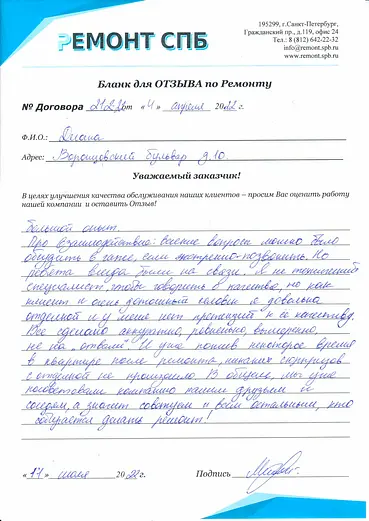 РЕМОНТ СПБ
195299, г.Санкт-Петербург,
Гражданский пр., д.119, офис 24
Тел.: 8 (812) 642-22-32
info@remont.spb.ru
www.remont.spb.ru
Бланк для ОТЗЫВА по Ремонту
№ Договора от «4» апреля 2022г.
Ф.И.О.: Диана
Адрес: бульвар д.10.
Уважаемый заказчик!
В целях улучшения качества обслуживания наших клиентов – просим Вас оценить работу
нашей компании и оставить Отзыв!
Большой опыт.
Про взаимодействие: всякие вопросы можно было
обсудить в чате, если экстренно-позвонить. Но
ребята всегда были на связи. Я не технический
специалист, чтобы говорить о качестве, но как
клиент и очень дотошный человек я довольна
отделкой и у меня нет претензий к качеству.
Все сделано аккуратно, ровненько, вымеренно,
не на "отвали". И уже пожив некоторое время
в квартире после ремонта, никаких сюрпризов
с отделкой не произошло. В общем, мы уже
посоветовали компанию нашим друзьям и
соседям, а значит советуем и всем остальным, кто
собирается делать ремонт!
«17» июля 2022г. Подпись